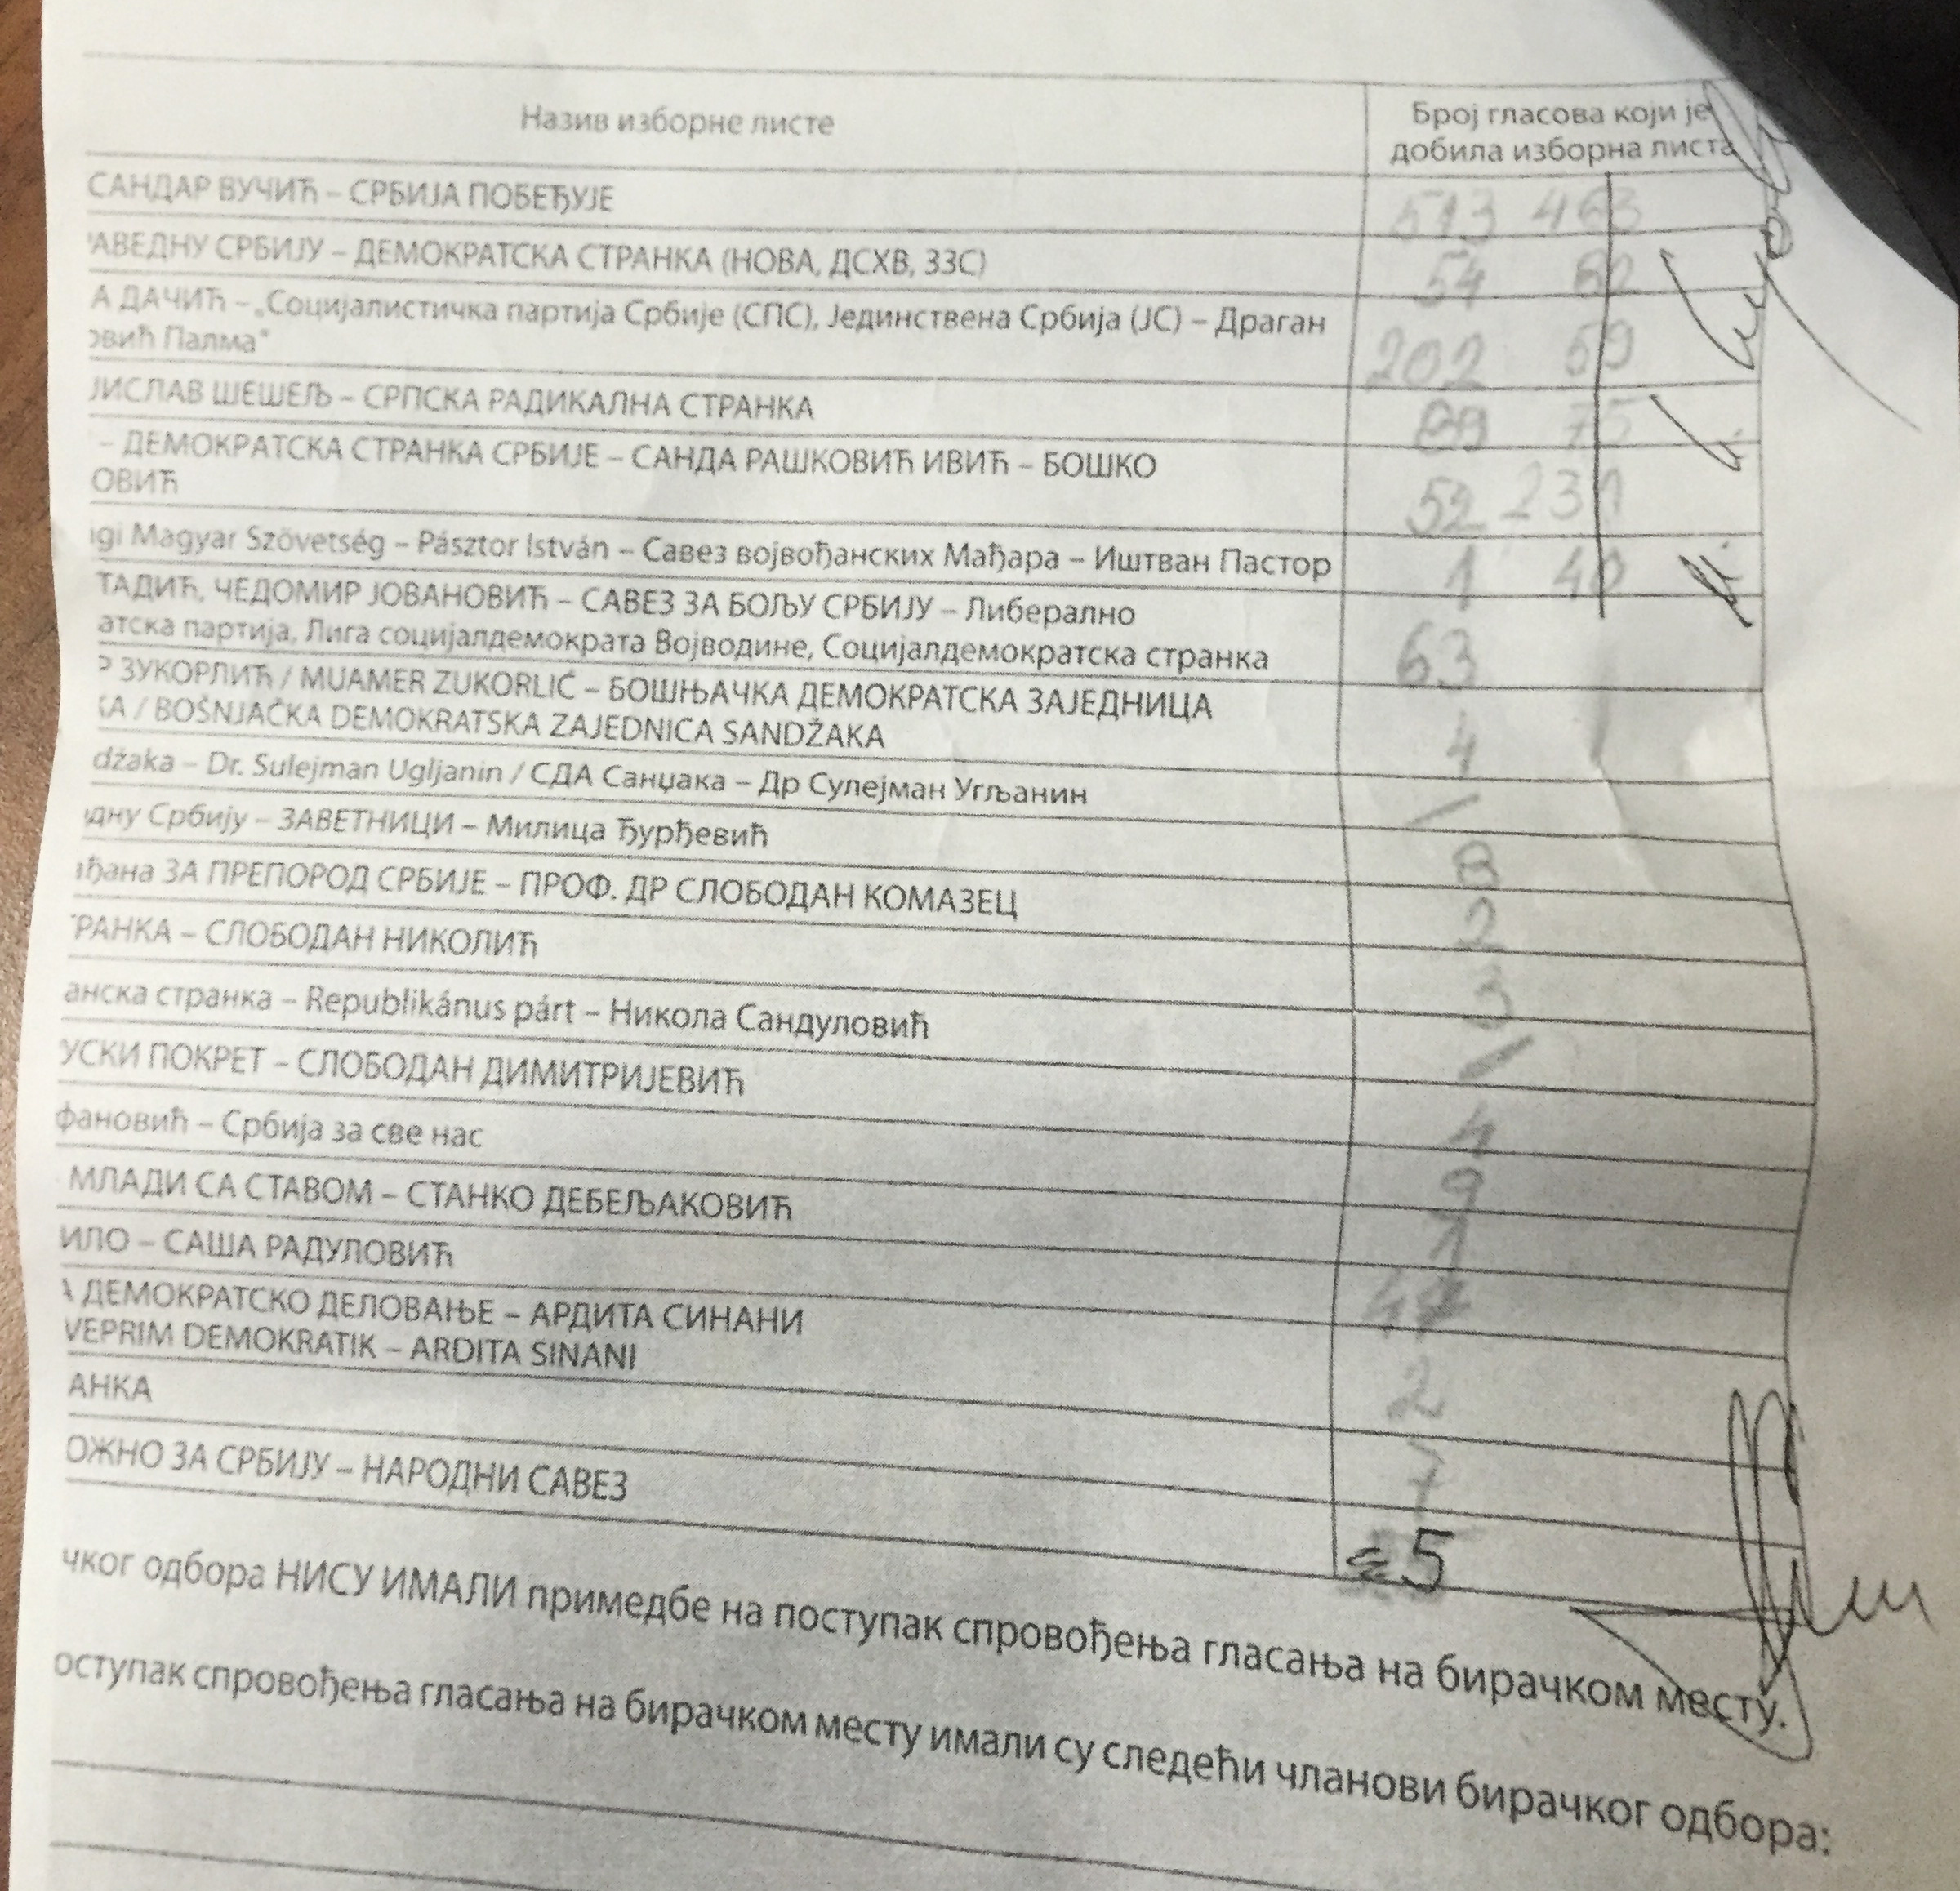 Назив изборне листе
Број гласова који је
добила изборна листа
САНДАР ВУЧИЋ – СРБИЈА ПОБЕЂУЈЕ
513 463
АВЕДНУ СРБИЈУ – ДЕМОКРАТСКА СТРАНКА (НОВА, ДСХВ, ЗЗС)
54 82
А ДАЧИЋ – „Социјалистичка партија Србије (СПС), Јединствена Србија (ЈС) – Драган
овић Палма"
202 59
ЛИСЛАВ ШЕШЕЉ – СРПСКА РАДИКАЛНА СТРАНКА
89 75
– ДЕМОКРАТСКА СТРАНКА СРБИЈЕ – САНДА РАШКОВИЋ ИВИЋ – БОШКО
ОВИЋ
52 231
gi Magyar Szövetség – Pásztor István – Савез војвођанских Мађара – Иштван Пастор
1 40
ТАДИЋ, ЧЕДОМИР ЈОВАНОВИЋ – САВЕЗ ЗА БОЉУ СРБИЈУ – Либерално
атска партија, Лига социјалдемократа Војводине, Социјалдемократска странка
63
Р ЗУКОРЛИЋ / MUAMER ZUKORLIĆ – БОШЊАЧКА ДЕМОКРАТСКА ЗАЈЕДНИЦА
КА / BOŠNJAČKA DEMOKRATSKA ZAJEDNICA SANDŽAKA
4
džaka – Dr. Sulejman Ugljanin / СДА Санџака – Др Сулејман Угљанин
/
дну Србију – ЗАВЕТНИЦИ – Милица Ђурђевић
8
ђана ЗА ПРЕПОРОД СРБИЈЕ – ПРОФ. ДР СЛОБОДАН КОМАЗЕЦ
2
РАНКА – СЛОБОДАН НИКОЛИЋ
3
анска странка – Republikánus párt – Никола Сандуловић
/
УСКИ ПОКРЕТ – СЛОБОДАН ДИМИТРИЈЕВИЋ
4
фановић – Србија за све нас
9
МЛАДИ СА СТАВОМ – СТАНКО ДЕБЕЉАКОВИЋ
1
ИЛО – САША РАДУЛОВИЋ
47
А ДЕМОКРАТСКО ДЕЛОВАЊЕ – АРДИТА СИНАНИ
VEPRIM DEMOKRATIK – ARDITA SINANI
2
АНКА
7
ОЖНО ЗА СРБИЈУ – НАРОДНИ САВЕЗ
5
чког одбора НИСУ ИМАЛИ примедбе на поступак спровођења гласања на бирачком месту.
оступак спровођења гласања на бирачком месту имали су следећи чланови бирачког одбора: